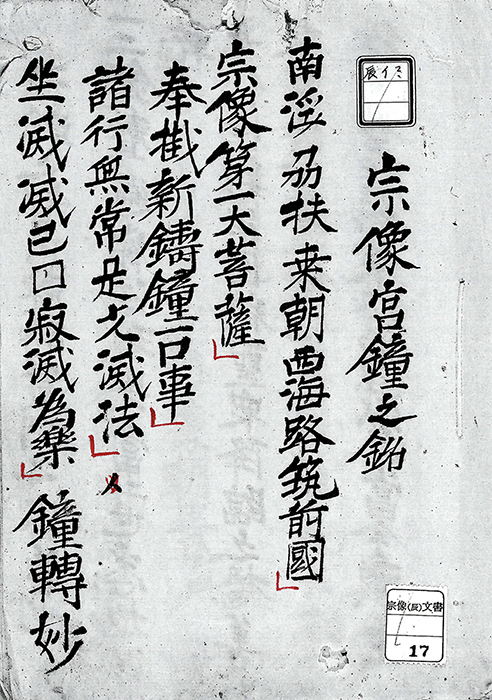 宗像宮鐘之銘
南浮刕扶桒朝西海路筑前國
宗像第一大菩薩
奉掛新鑄鐘一口事
諸行無常是生滅法
生滅滅已寂滅為樂 鐘轉妙
宗像(辰)文書
17